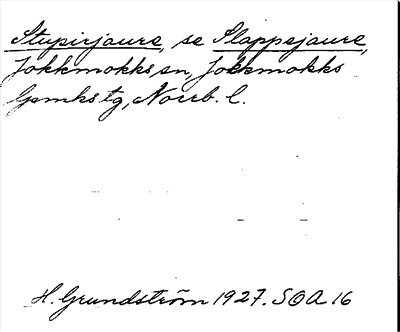 Stupirjaure, se Slappejaure,
Jokkmokks sn, Jokkmokks
lpmkstg, Norrb. l.
H. Grundström 1927. SOA 16